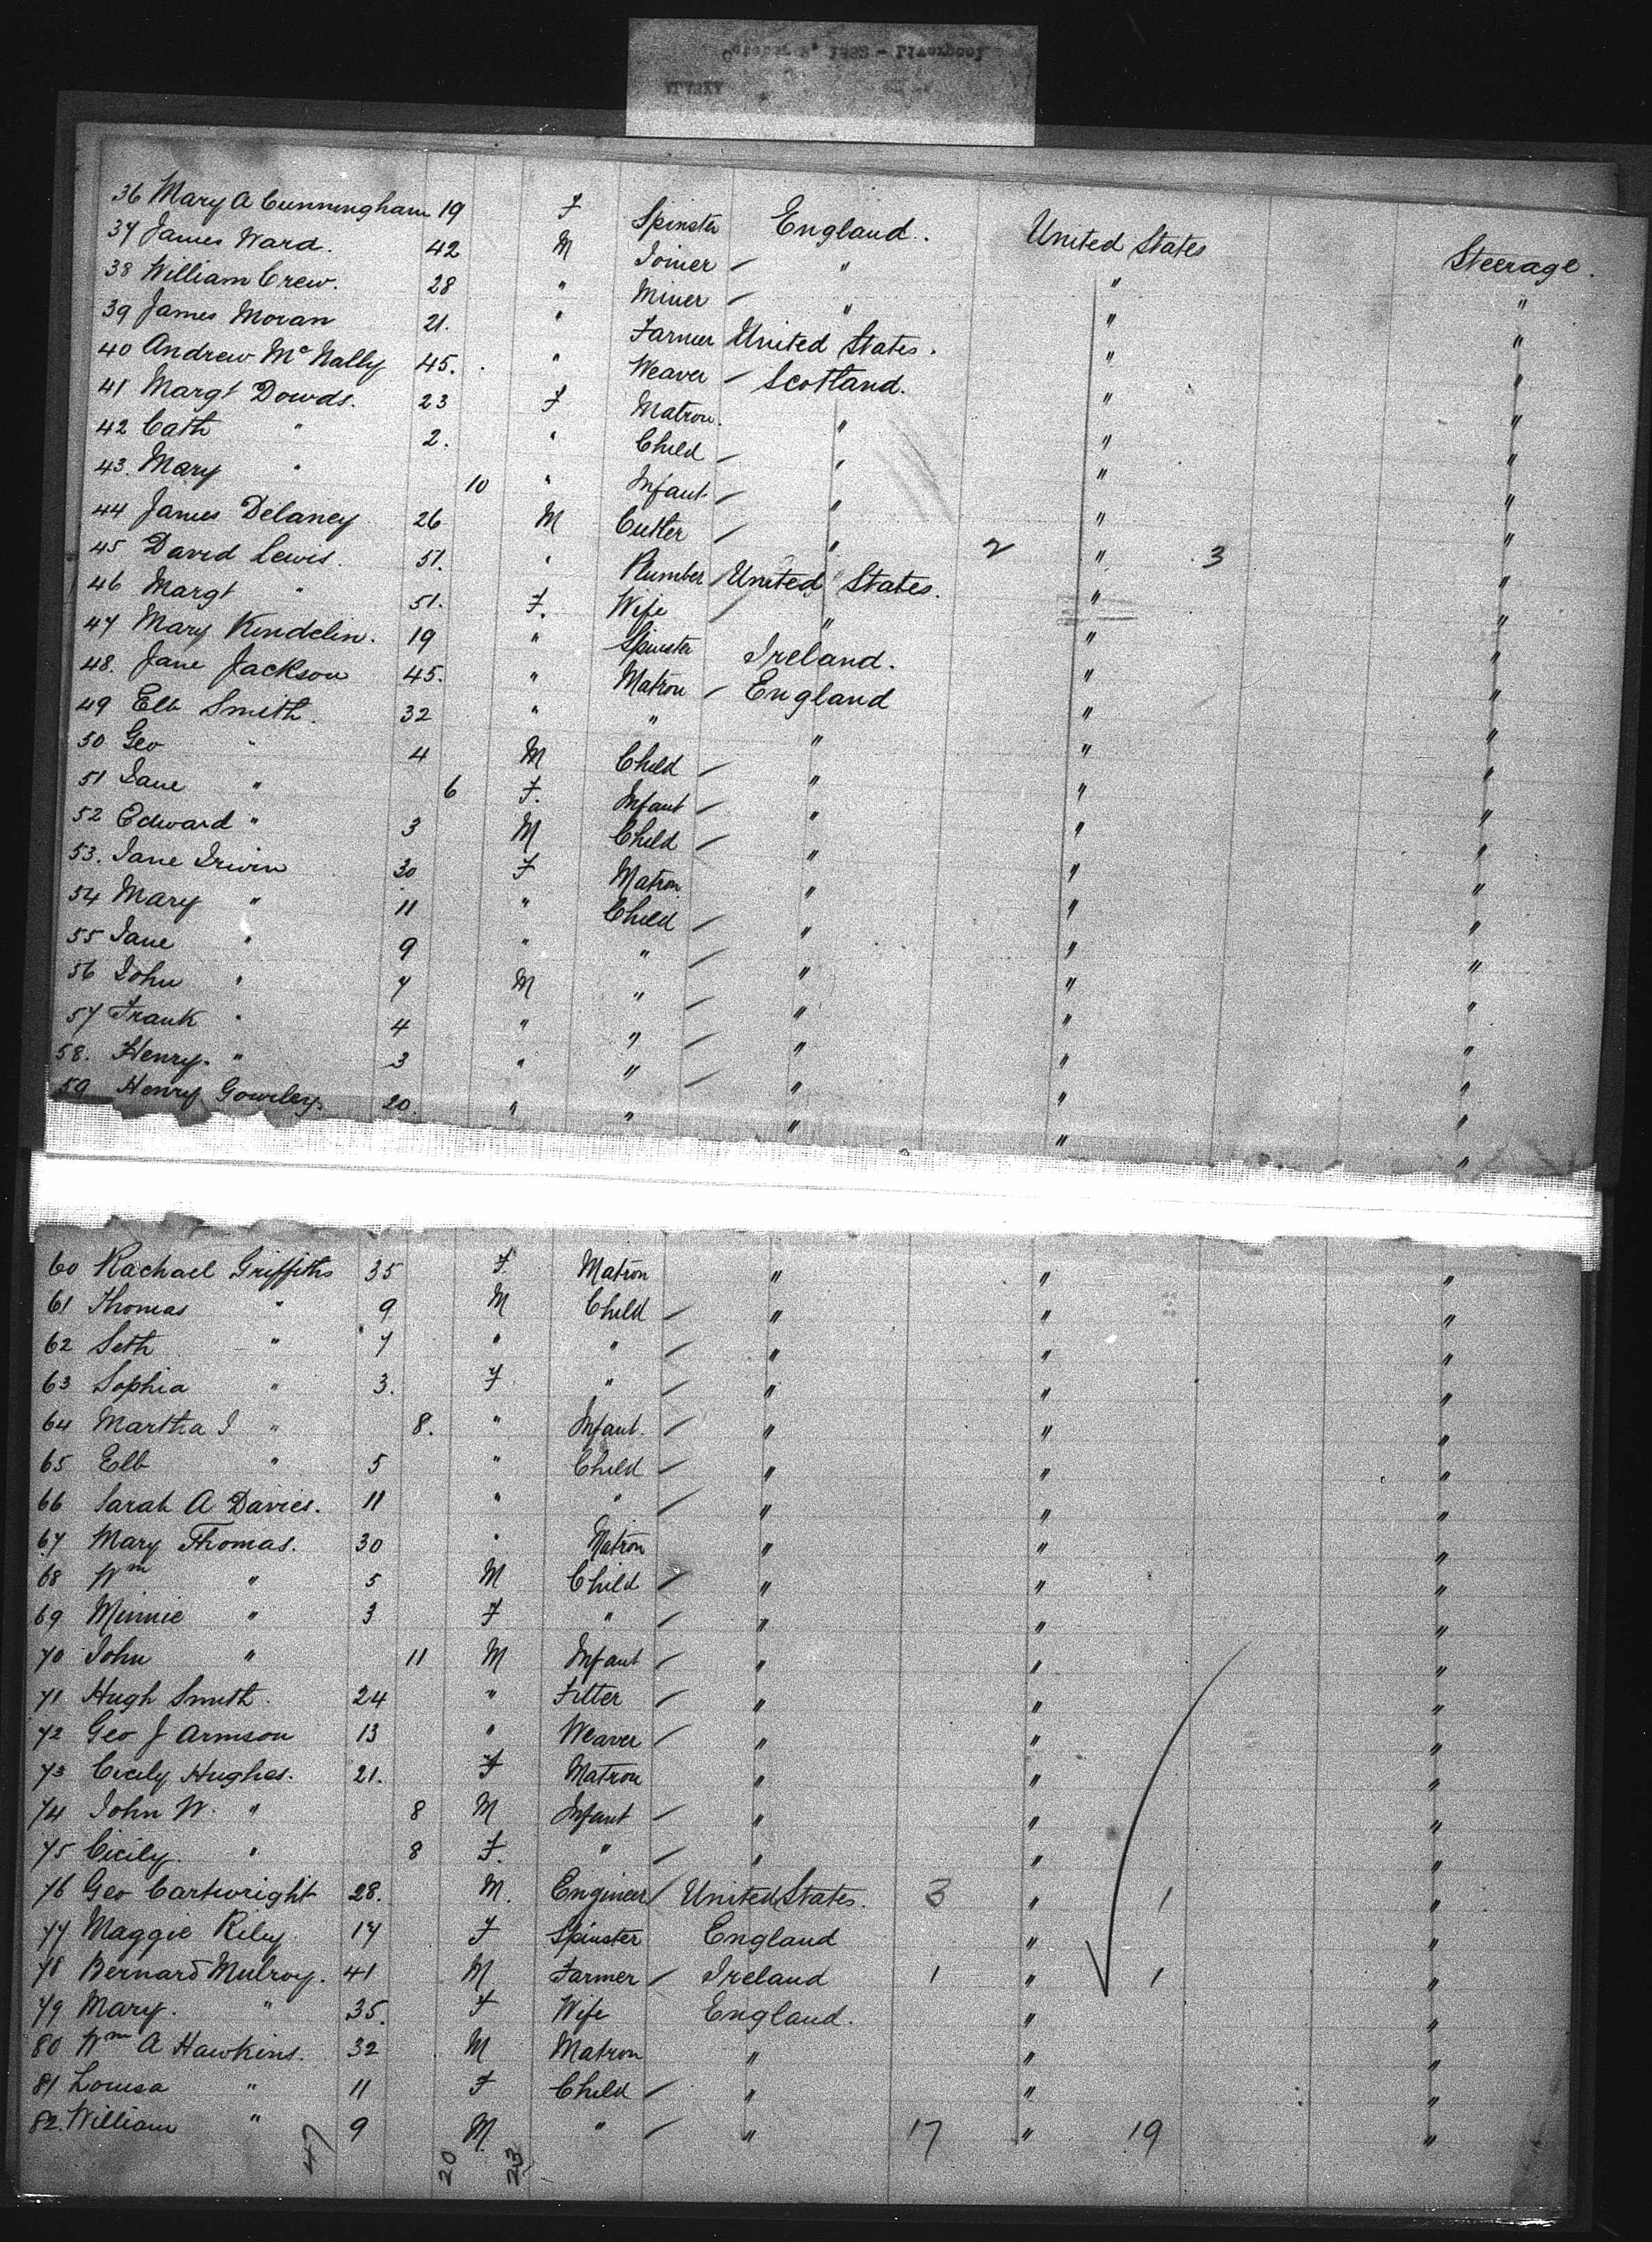 October 1883 - Liverpool
36 Mary A Cunningham 19 F Spinster England. United States Steerage.
37 James Ward. 42 M Joiner / " " "
38 William Crew. 28 " Miner / " " "
39 James Moran 21. " Farmer United States. " "
40 Andrew McNally 45. " Weaver / Scotland. " "
41 Margt Dowds. 23 F Matron. " " "
42 Cath " 2. " Child / " " "
43. Mary " 10 " Infant / " " "
44 James Delaney 26 M Cutler / " 2 " 3 "
45 David Lewis. 51. " Plumber / United States. " "
46 Margt " 51. F. Wife / " " "
47 Mary Kindelin. 19 " Spinster Ireland. " "
48. Jane Jackson 45. " Matron / England " "
49 Elb Smith. 32 " " " " "
50 Geo " 4 M Child / " " "
51 Jane " 6 F. Infant / " " "
52 Edward " 3 M Child / " " "
53. Jane Irwin 30 F Matron " " "
54 Mary " 11 " Child / " " "
55 Jane " 9 " " / " " "
56 John " 7 M " / " " "
57 Frank " 4 " " / " " "
58. Henry. " 3 " " / " " "
59 Henry Gourley. 20. " " " " "
60 Rachael Griffiths 35 F Matron " " "
61 Thomas " 9 M Child / " " "
62 Seth " 7 " " / " " "
63 Sophia " 3. F " / " " "
64 Martha J " 8. " Infant. / " " "
65 Elb " 5 " Child / " " "
66 Sarah A Davies. 11 " " / " " "
67 Mary Thomas. 30 " Matron " " "
68 Wm " 5 M Child / " " "
69 Minnie " 3 F " / " " "
70 John " 11 M Infant / " " "
71 Hugh Smith. 24 " Fitter / " " "
72 Geo J Armson 13 " Weaver / " " "
73 Cicily Hughes. 21. F Matron " " "
74 John W. " 8 M Infant / " " "
75 Cicily. " 8 F. " / " " "
76 Geo Cartwright 28. M. Engineer / United States. 3 " 1 "
77 Maggie Riley 17 F Spinster England " "
78 Bernard Mulroy. 41 M Farmer / Ireland 1 " 1 "
79 Mary. " 35. F Wife England. " "
80 Wm A Hawkins. 32 M Matron " " "
81 Louisa " 11 F Child / " " "
82. William " 9 M. " / " 17 " 19 "
47 20 23